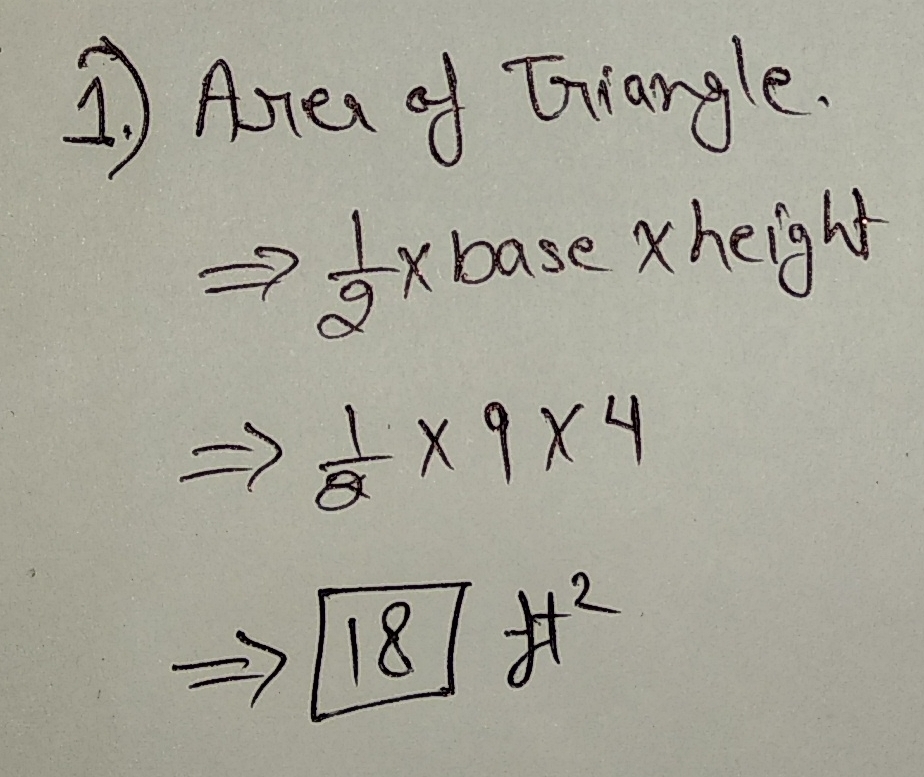 1.) Area of Triangle.
⇒ 1/2 x base x height
⇒ 1/2 x 9 x 4
⇒ 18 ft²